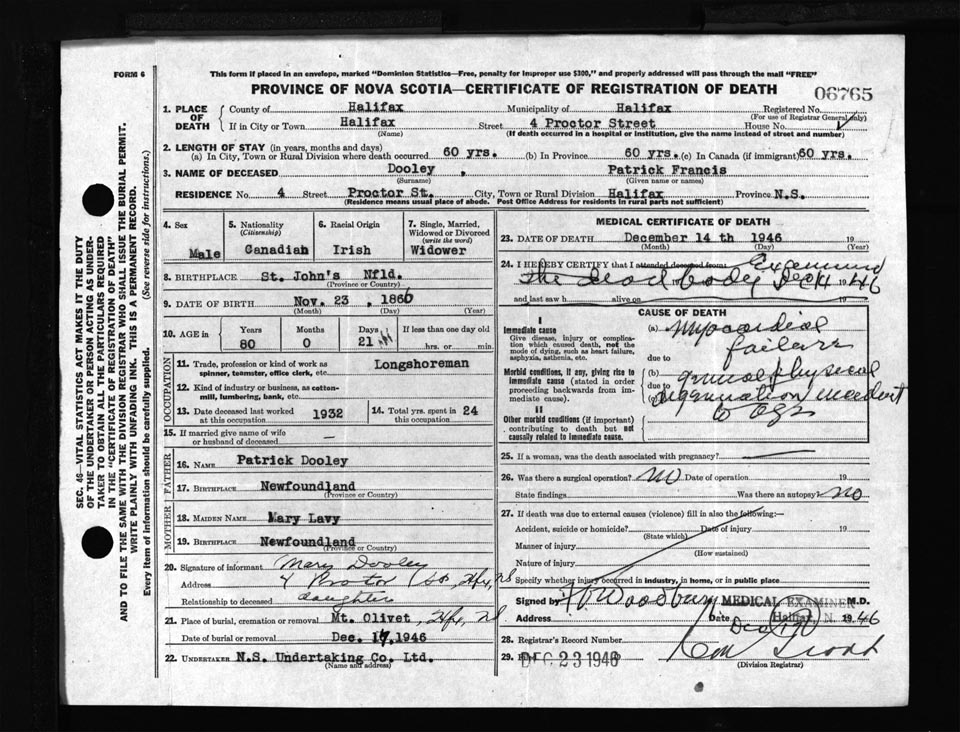 FORM 6
This form if placed in an envelope, marked "Dominion Statistics—Free, penalty for improper use $300," and properly addressed will pass through the mail "FREE"
PROVINCE OF NOVA SCOTIA—CERTIFICATE OF REGISTRATION OF DEATH
06765
1. PLACE OF DEATH
County of Halifax Municipality of Halifax Registered No.
(For use of Registrar General only)
If in City or Town Halifax Street 4 Proctor Street House No.
(Name) (If death occurred in a hospital or institution, give the name instead of street and number)
2. LENGTH OF STAY (in years, months and days)
(a) In City, Town or Rural Division where death occurred 60 yrs. (b) In Province 60 yrs. (c) In Canada (if immigrant) 60 yrs.
3. NAME OF DECEASED Dooley, Patrick Francis
(Surname) (Given name or names)
RESIDENCE No. 4 Street Proctor St. City, Town or Rural Division Halifax Province N.S.
(Residence means usual place of abode. Post Office Address for residents in rural parts not sufficient)
4. Sex
Male
5. Nationality
(Citizenship)
Canadian
6. Racial Origin
Irish
7. Single, Married, Widowed or Divorced
(write the word)
Widower
8. BIRTHPLACE St. John's Nfld.
(Province or Country)
9. DATE OF BIRTH Nov. 23, 1866
(Month) (Day) (Year)
10. AGE in
Years Months Days If less than one day old
80 0 21 hrs. or min.
OCCUPATION
11. Trade, profession or kind of work as spinner, teamster, office clerk, etc. Longshoreman
12. Kind of industry or business, as cotton-mill, lumbering, bank, etc.
13. Date deceased last worked at this occupation 1932
14. Total yrs. spent in this occupation 24
15. If married give name of wife or husband of deceased —
FATHER
16. NAME Patrick Dooley
17. BIRTHPLACE Newfoundland
(Province or Country)
MOTHER
18. MAIDEN NAME Mary Lavy
19. BIRTHPLACE Newfoundland
(Province or Country)
20. Signature of informant Mary Dooley
Address 4 Proctor St, Hfx, NS
Relationship to deceased daughter
21. Place of burial, cremation or removal Mt. Olivet, Hfx, NS
Date of burial or removal Dec. 17, 1946
22. UNDERTAKER N.S. Undertaking Co. Ltd.
(Name and address)
MEDICAL CERTIFICATE OF DEATH
23. DATE OF DEATH December 14 th 1946 19
(Month) (Day) (Year)
24. I HEREBY CERTIFY that I attended deceased from Examined
the dead body Dec 14 1946
and last saw h alive on 19
CAUSE OF DEATH
I
Immediate cause
Give disease, injury or complication which caused death, not the mode of dying, such as heart failure, asphyxia, asthenia, etc.
(a) Myocardial
failure
due to
Morbid conditions, if any, giving rise to immediate cause (stated in order proceeding backwards from immediate cause).
(b) general physical
due to
(c) degeneration incident
to age
II
Other morbid conditions (if important) contributing to death but not causally related to immediate cause.
25. If a woman, was the death associated with pregnancy? —
26. Was there a surgical operation? No Date of operation 19
State findings Was there an autopsy? no
27. If death was due to external causes (violence) fill in also the following:—
Accident, suicide or homicide? Date of injury 19
(State which)
Manner of injury
(How sustained)
Nature of injury
Specify whether injury occurred in industry, in home, or in public place
Signed by Woodbury MEDICAL EXAMINER M.D.
Address Halifax, N. Date Dec 1946
28. Registrar's Record Number
29. DEC 23 1946
(Division Registrar)
SEC. 46—VITAL STATISTICS ACT MAKES IT THE DUTY
OF THE UNDERTAKER OR PERSON ACTING AS UNDER-
TAKER TO OBTAIN ALL THE PARTICULARS REQUIRED
IN THE "CERTIFICATE OF REGISTRATION OF DEATH"
AND TO FILE THE SAME WITH THE DIVISION REGISTRAR WHO SHALL ISSUE THE BURIAL PERMIT.
WRITE PLAINLY WITH UNFADING INK. THIS IS A PERMANENT RECORD.
Every item of information should be carefully supplied. (See reverse side for instructions.)